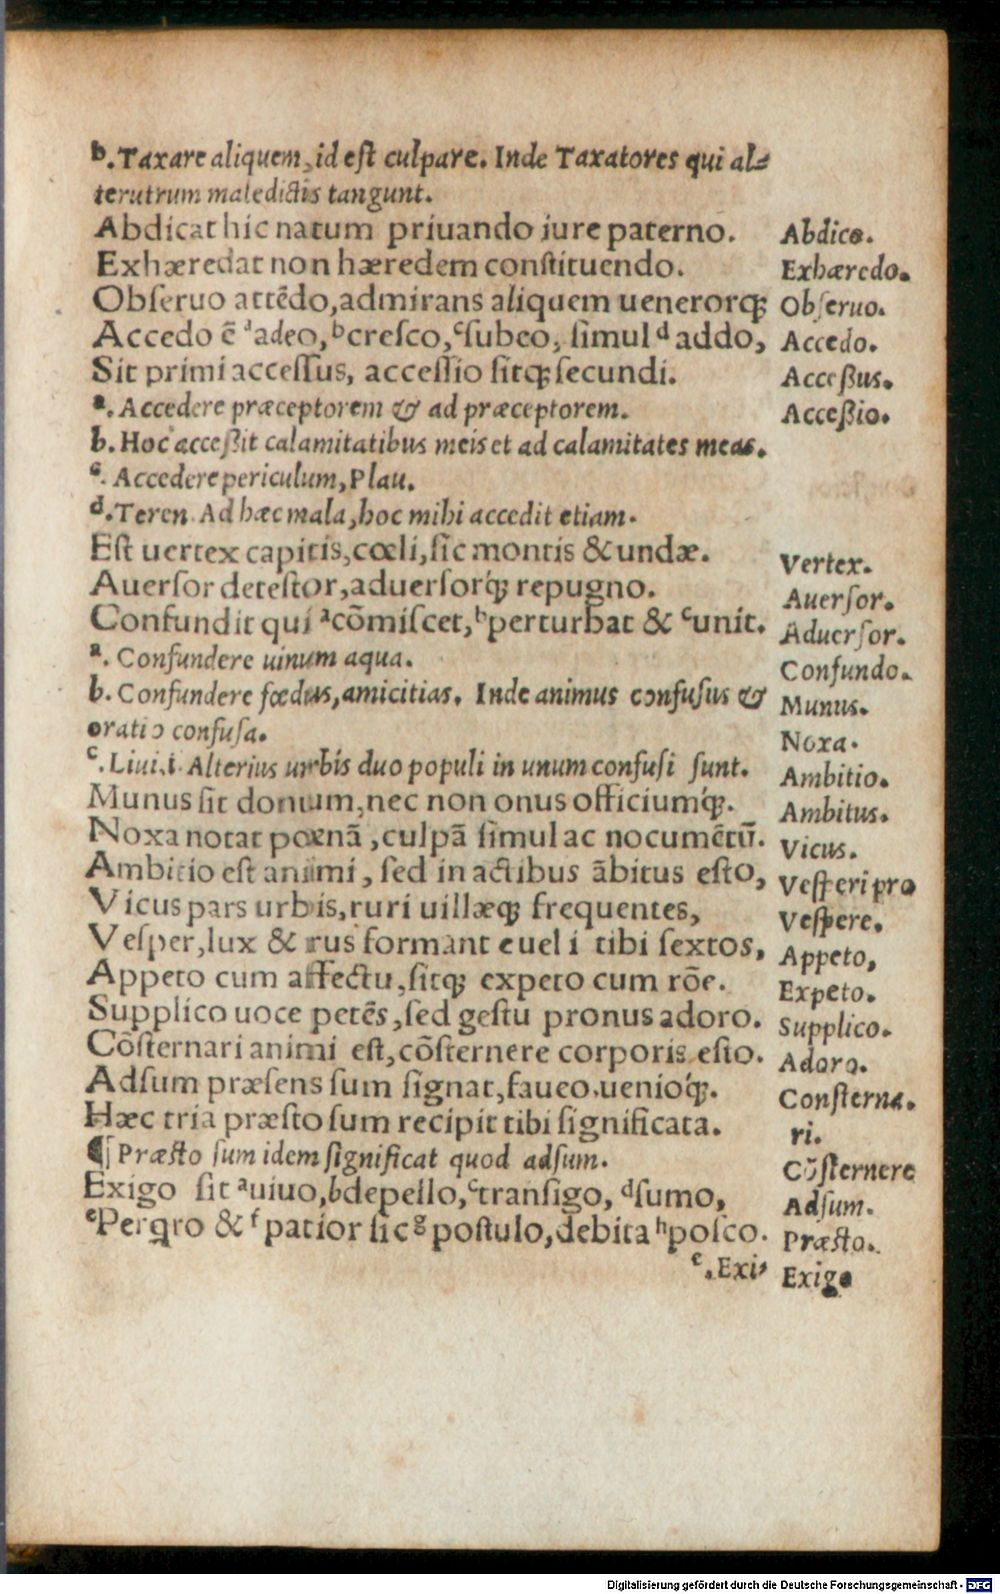 b. Taxare aliquem, id est culpare. Inde Taxatores qui al⸗
terutrum maledictis tangunt.
Abdicat hic natum priuando iure paterno. Abdico.
Exhæredat non hæredem constituendo. Exhæredo.
Obseruo attēdo, admirans aliquem uenerorq́; Obseruo.
Accedo ē ᵃadeo, ᵇcresco, ᶜsubeo, simul ᵈaddo, Accedo.
Sit primi accessus, accessio sitq́; secundi. Acceßus.
a. Accedere præceptorem & ad præceptorem. Acceßio.
b. Hoc acceßit calamitatibus meis et ad calamitates meas.
c. Accedere periculum, Plau.
d. Teren. Ad hæc mala, hoc mihi accedit etiam.
Est uertex capitis, cœli, sic montis & undæ. Vertex.
Auersor detestor, aduersorq́; repugno. Auersor.
Confundit qui ᵃcōmiscet, ᵇperturbat & ᶜunit. Aduersor.
a. Confundere uinum aqua. Confundo.
b. Confundere fœdus, amicitias. Inde animus confusus & Munus.
oratio confusa. Noxa.
c. Liui. i. Alterius urbis duo populi in unum confusi sunt. Ambitio.
Munus sit donum, nec non onus officiumq́;. Ambitus.
Noxa notat pœnā, culpā simul ac nocumētū. Vicus.
Ambitio est animi, sed in actibus ābitus esto, Vesperi pro
Vicus pars urbis, ruri uillæq́; frequentes, Vespere.
Vesper, lux & rus formant euel i tibi sextos, Appeto,
Appeto cum affectu, sitq́; expeto cum rōe. Expeto.
Supplico uoce petēs, sed gestu pronus adoro. Supplico.
Cōsternari animi est, cōsternere corporis esto. Adoro.
Adsum præsens sum signat, faueo, uenioq́;. Consterna.
Hæc tria præsto sum recipit tibi significata. ri.
¶ Præsto sum idem significat quod adsum. Cōsternere
Exigo sit ᵃuiuo, ᵇdepello, ᶜtransigo, ᵈsumo, Adsum.
ᵉPerqro & ᶠpatior sic ᵍpostulo, debita ʰposco. Præsto.
c. Exi⸗ Exigo
Digitalisierung gefördert durch die Deutsche Forschungsgemeinschaft - DFG